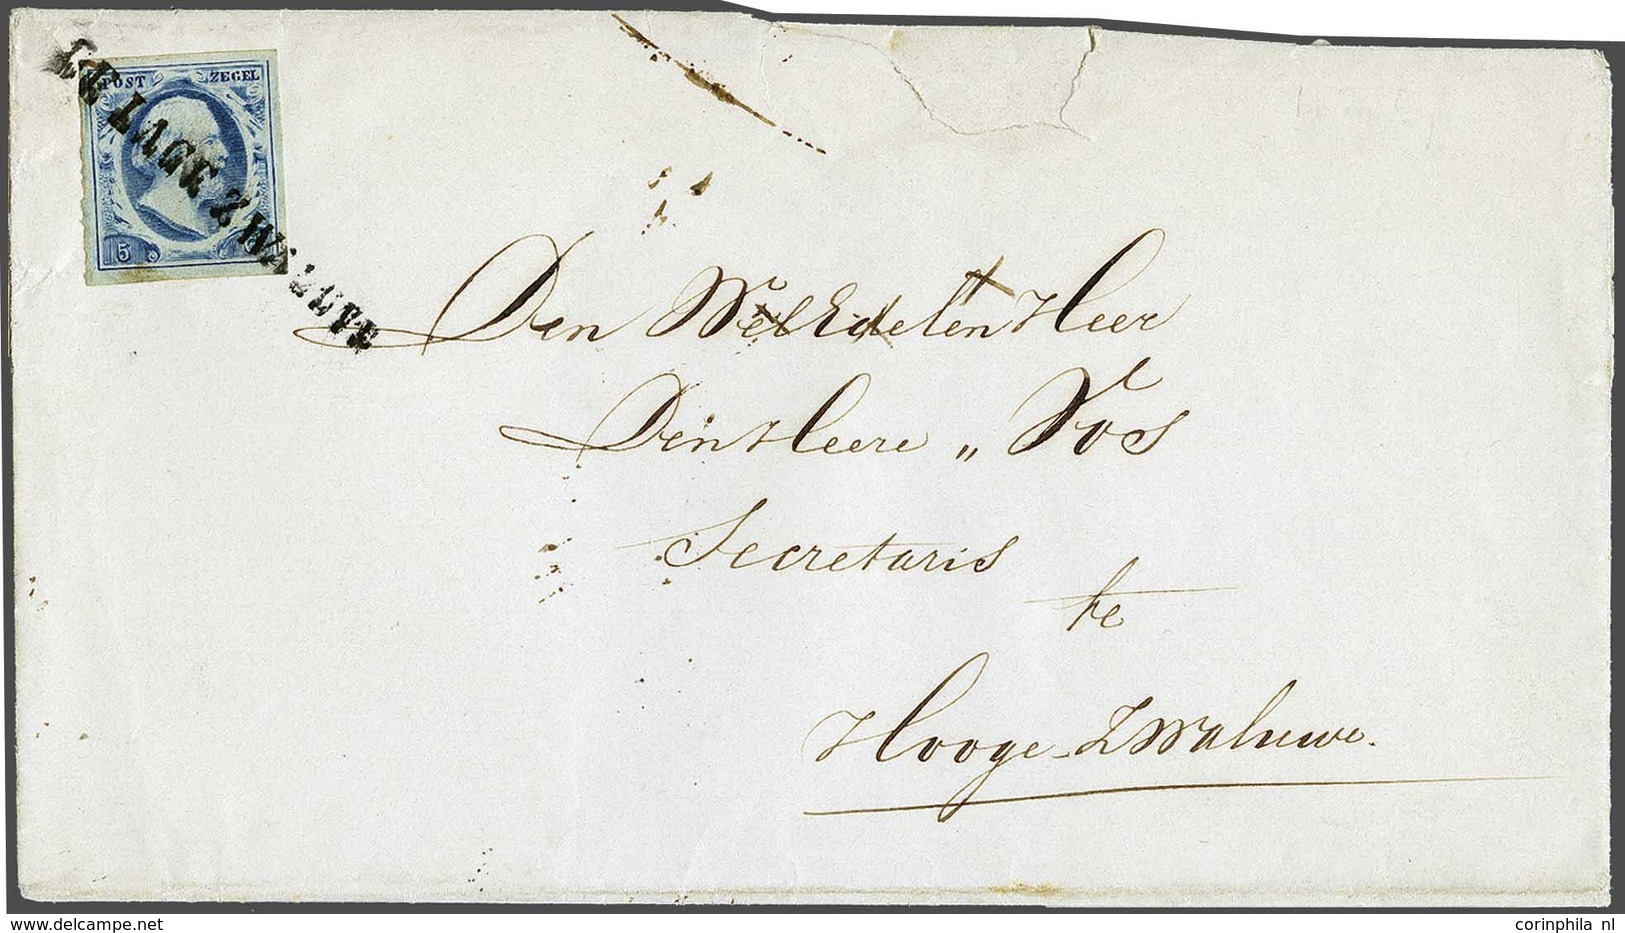 POST ZEGEL
5
DE LAGE ZWALUWE
Den WelEdelen Heer
Den Heere „ Vos
Secretaris
te
Hooge-Zwaluwe.
delcampe.net
corinphila nl